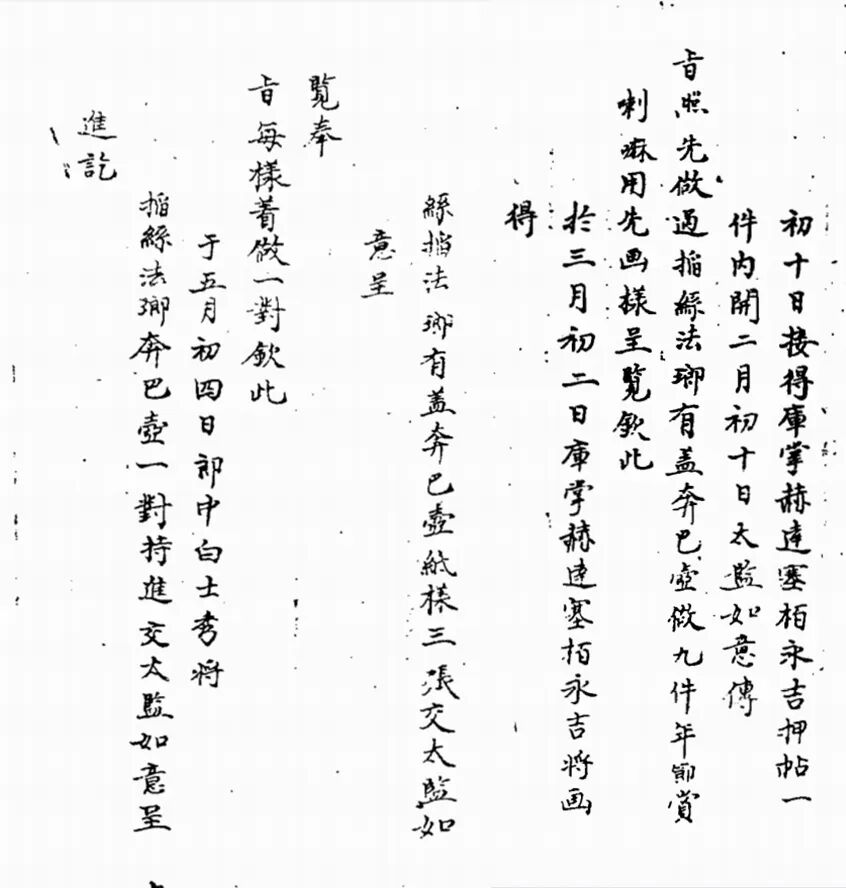 初十日接得庫掌赫達塞栢永吉押帖一
件内開二月初十日太監如意傳
旨照先做過掐絲法瑯有盖奔巴壺做九件年節賞
喇嘛用先画樣呈覽欽此
於三月初二日庫掌赫達塞栢永吉將画
得
絲掐法瑯有盖奔巴壺紙樣三張交太監如
意呈
覽奉
旨每樣着做一對欽此
于五月初四日郎中白士秀將
掐絲法瑯奔巴壺一對持進交太監如意呈
進訖